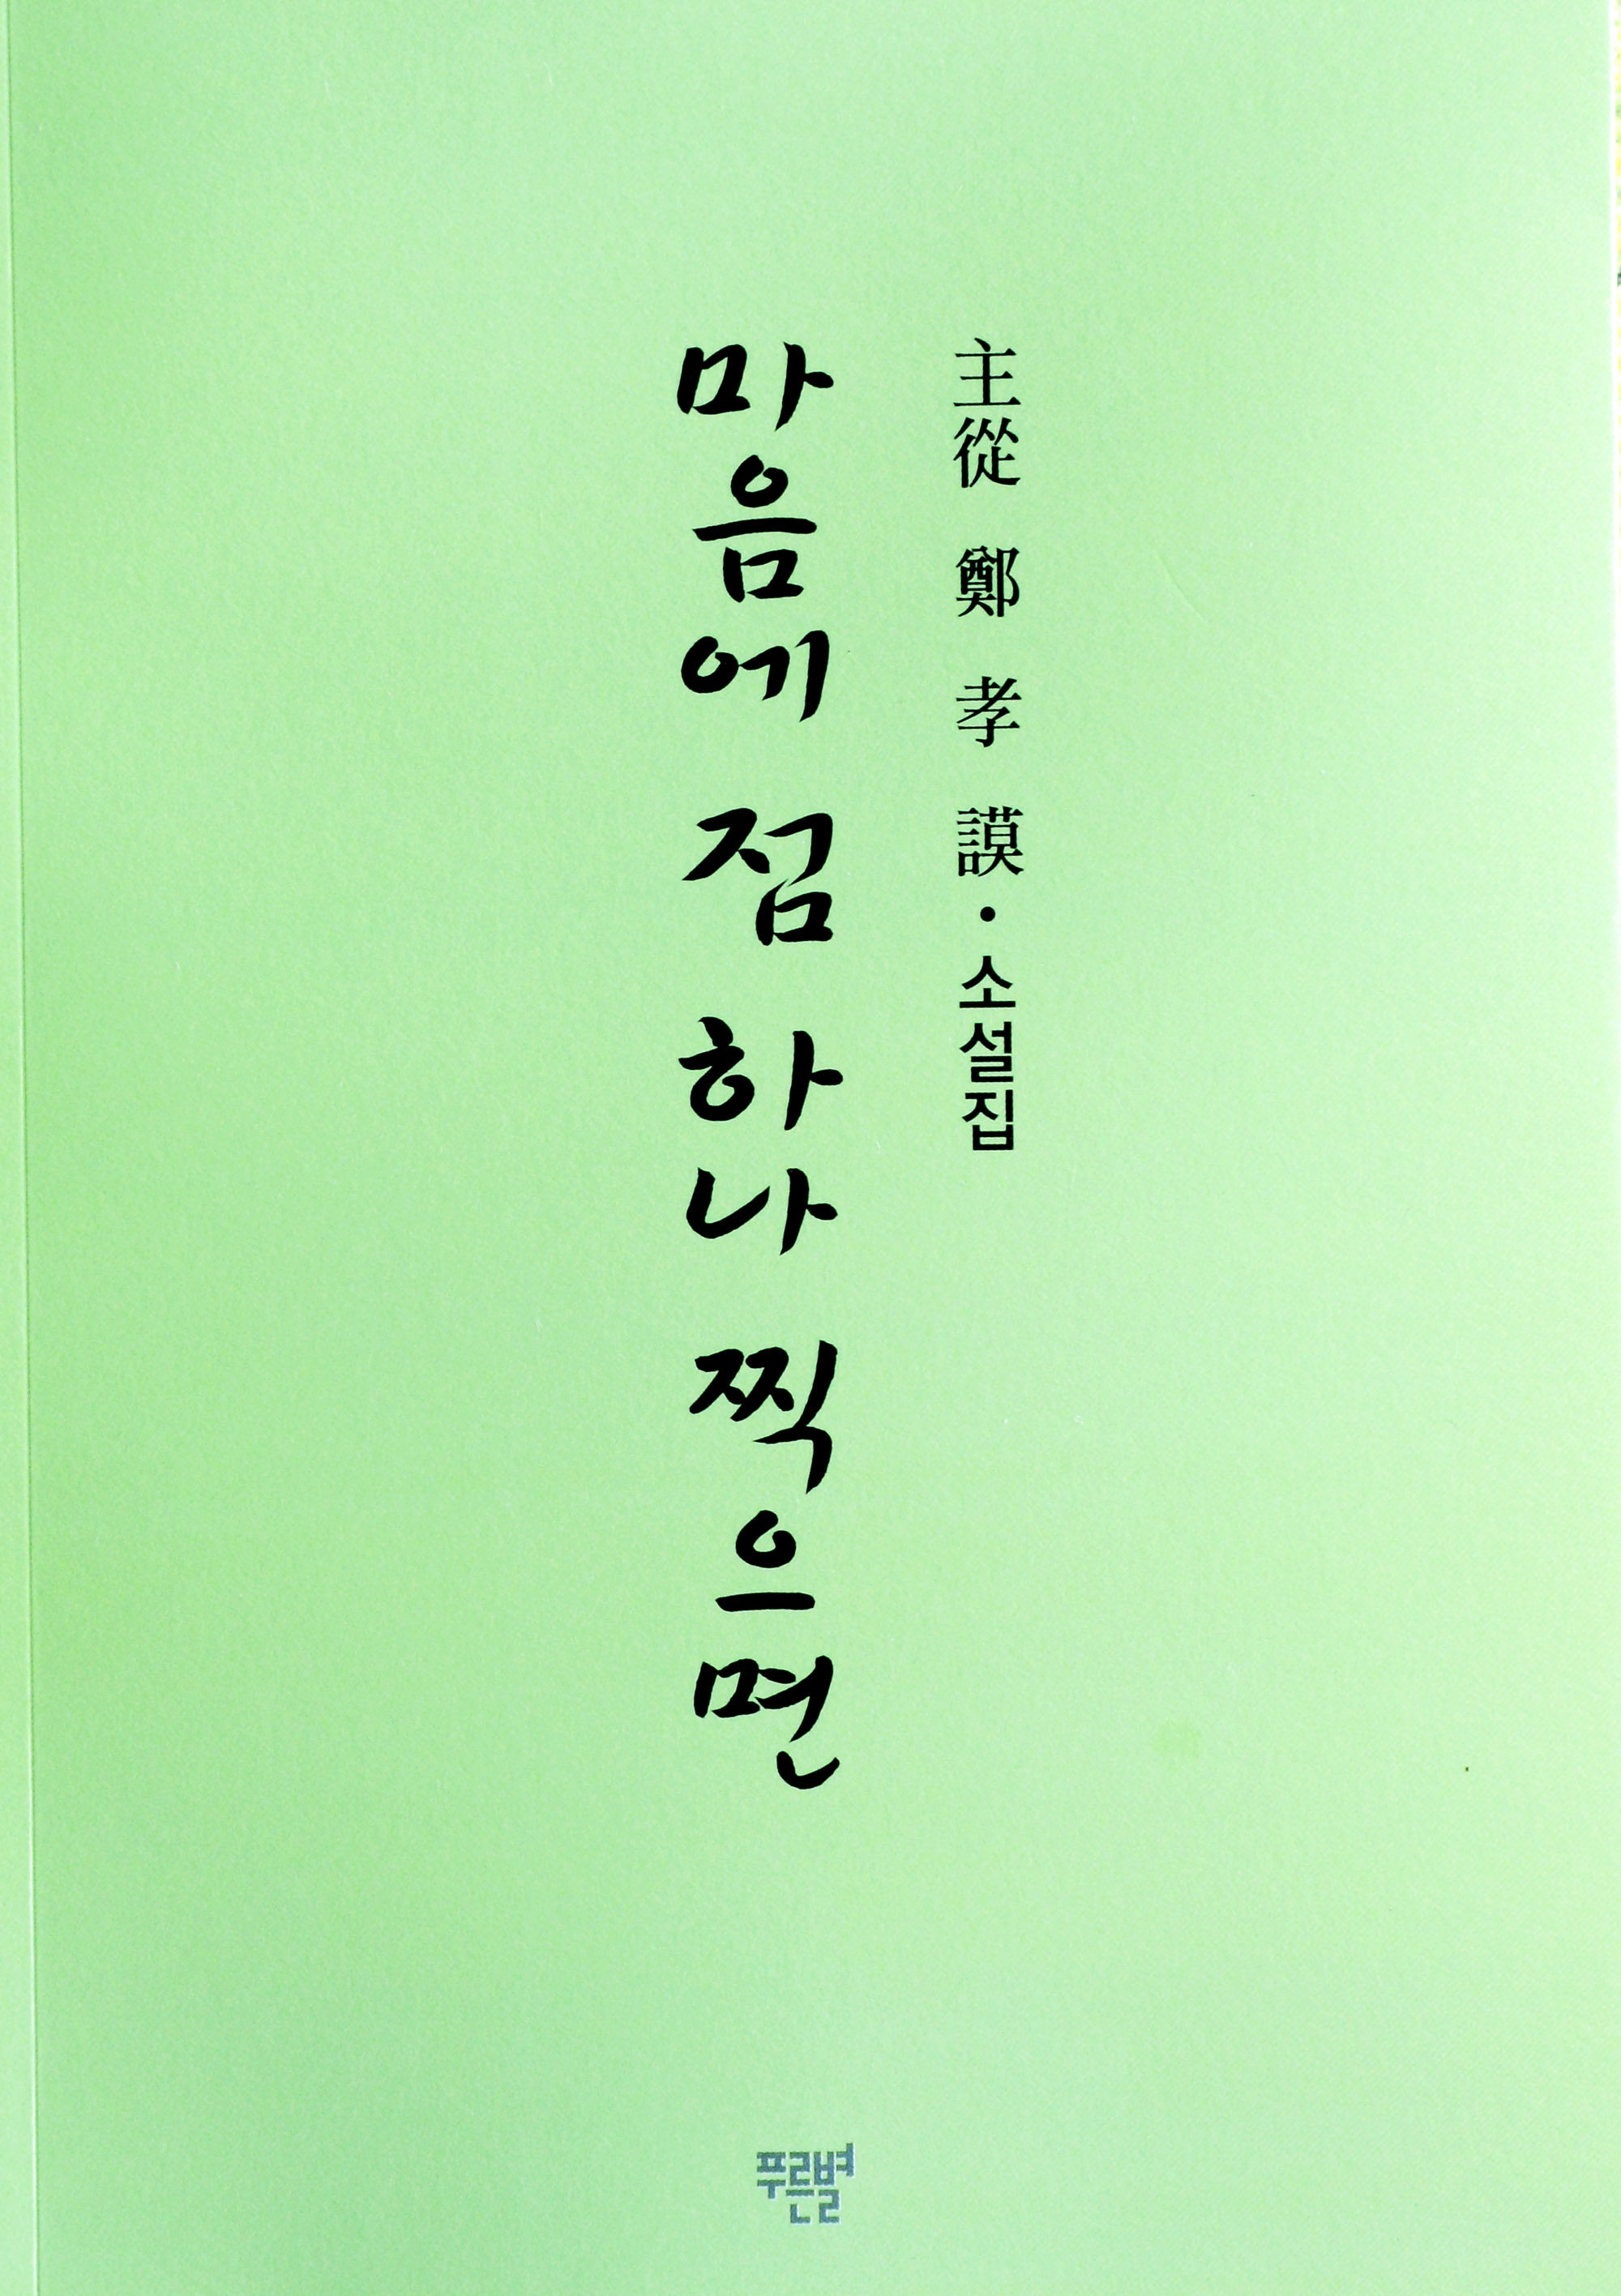 主從 鄭 孝 謨 · 소설집
마음에 점 하나 찍으면
푸른별